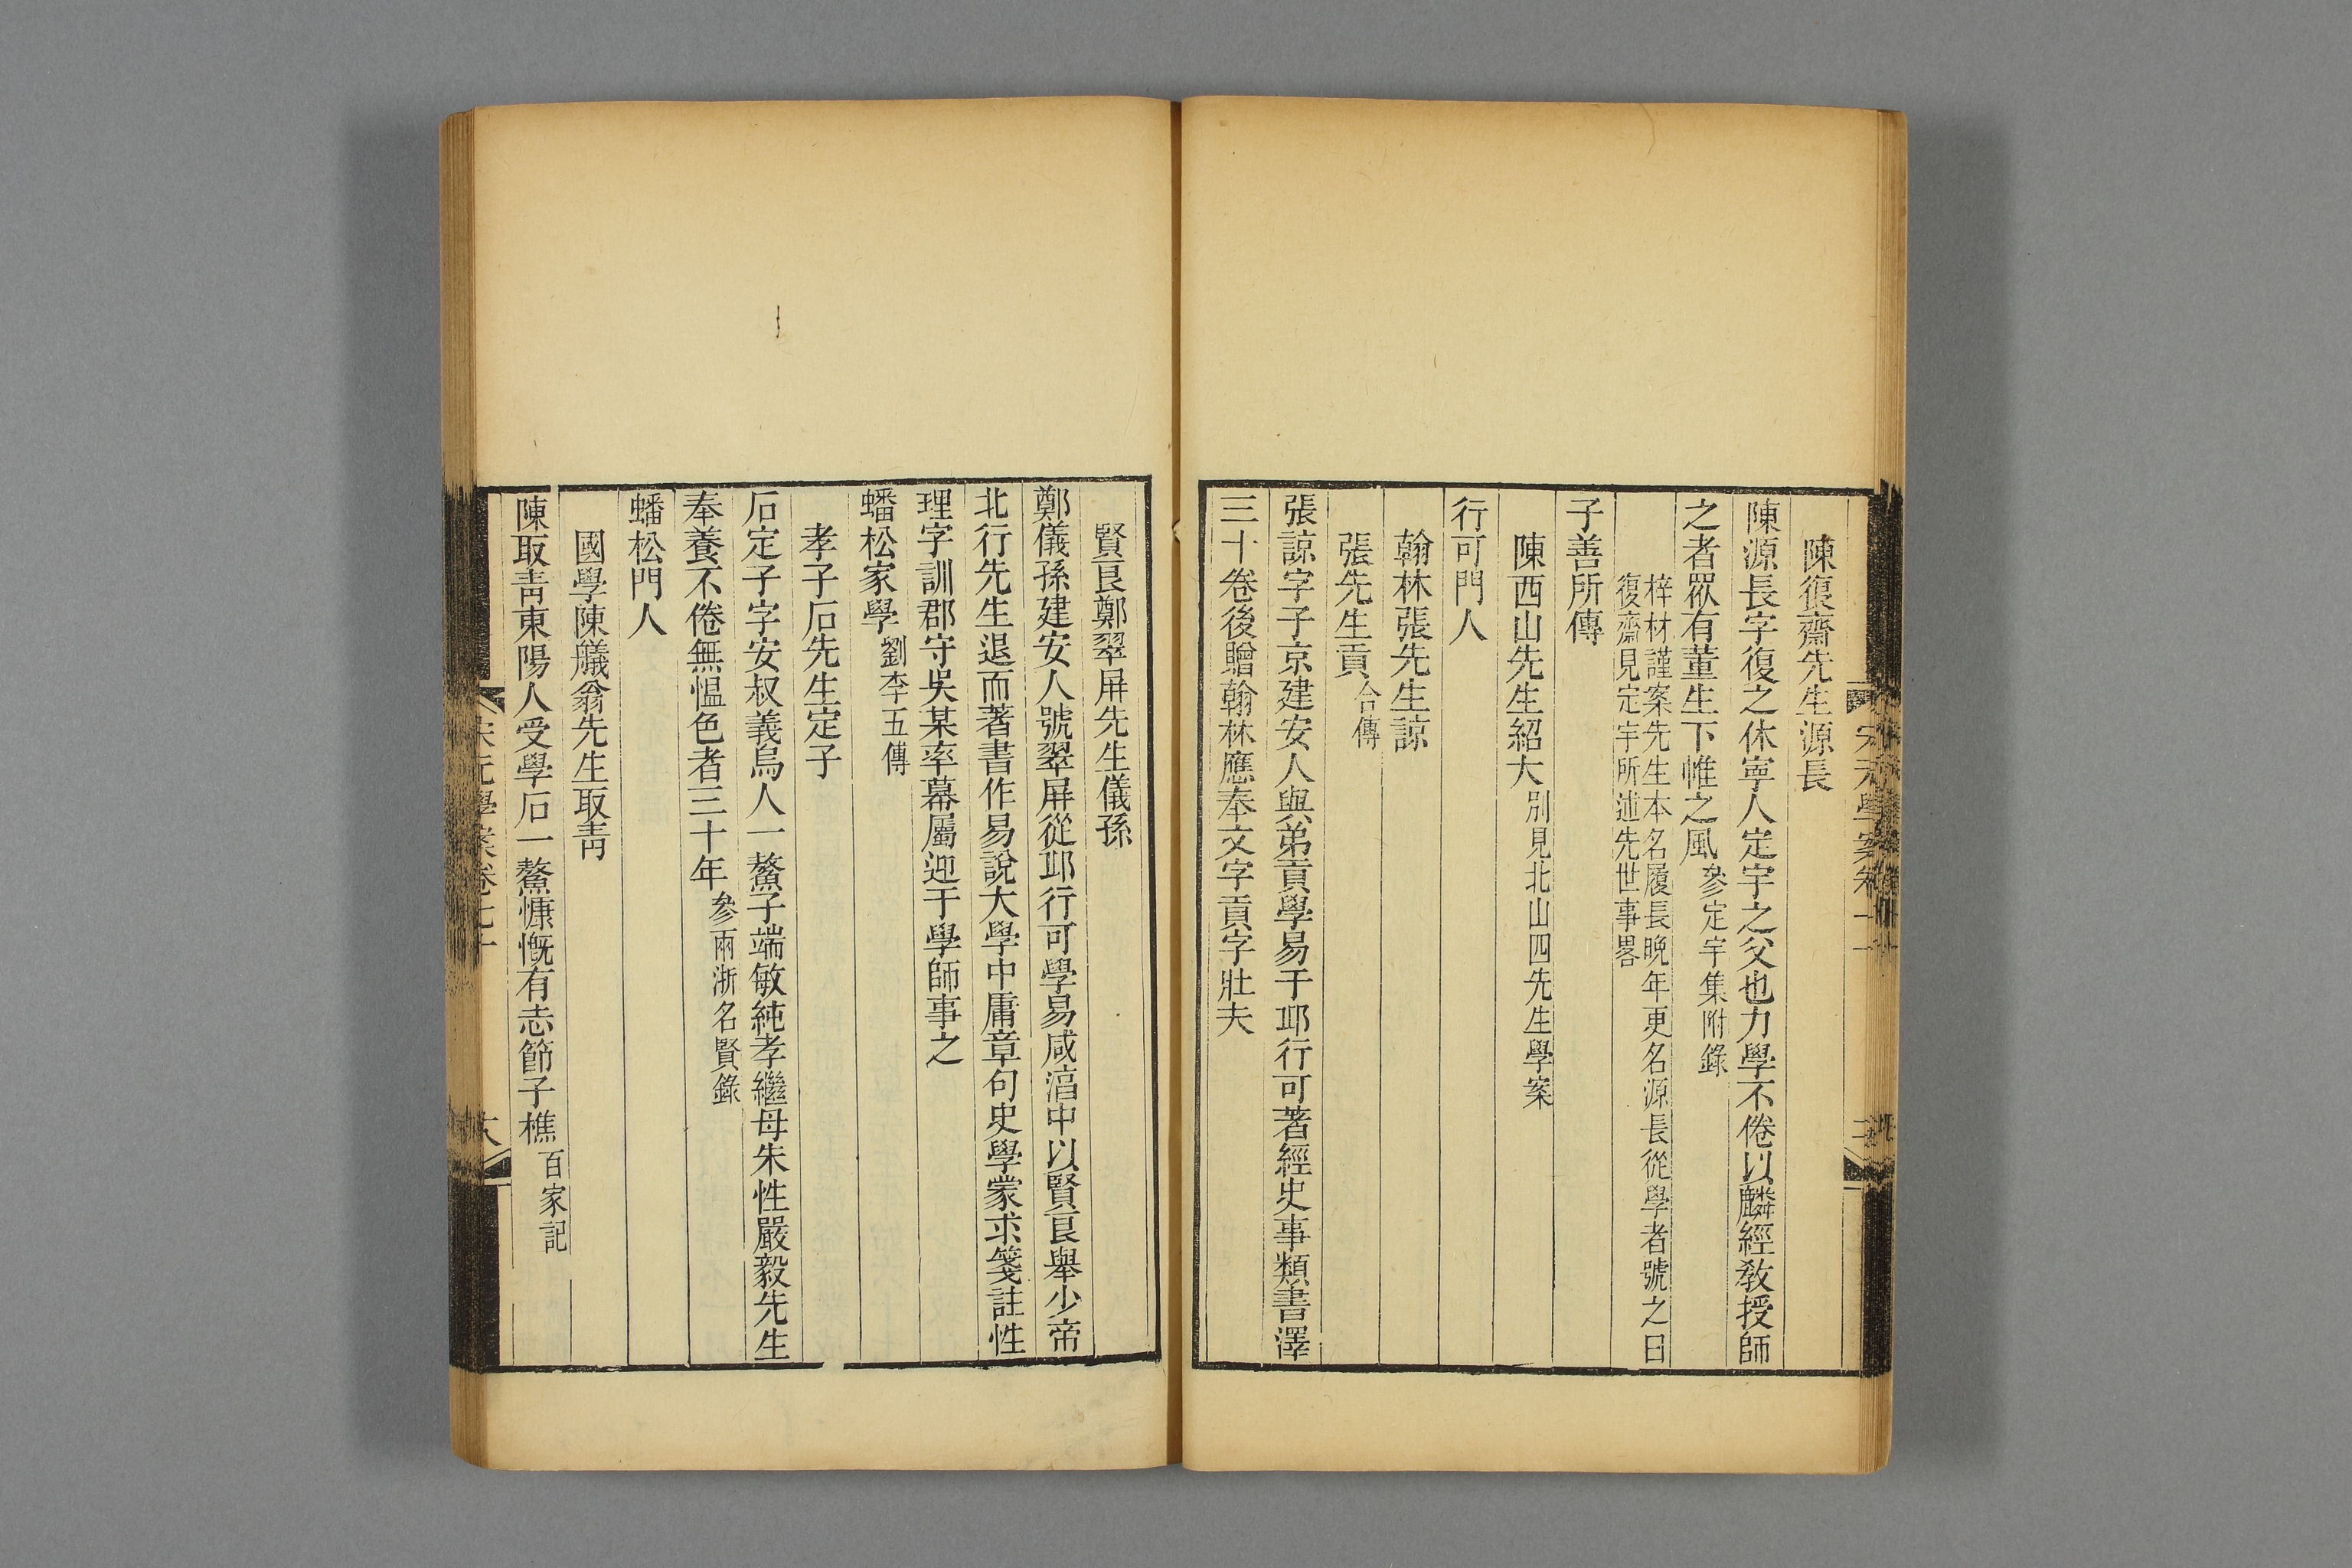 陳復齋先生源長
陳源長字復之休寧人定宇之父也力學不倦以麟經敎授師
之者眾有董生下帷之風參定宇集附錄
梓材謹案先生本名履長晚年更名源長從學者號之曰
復齋見定宇所述先世事畧
子善所傳
陳西山先生紹大別見北山四先生學案
行可門人
翰林張先生諒
張先生貢合傳
張諒字子京建安人與弟貢學易于邱行可著經史事類書澤
三十卷後贈翰林應奉文字貢字壯夫
賢良鄭翠屏先生儀孫
鄭儀孫建安人號翠屏從邱行可學易咸湻中以賢良舉少帝
北行先生退而著書作易說大學中庸章句史學蒙求箋註性
理字訓郡守吳某率幕屬迎于學師事之
蟠松家學劉李五傳
孝子石先生定子
石定子字安叔義烏人一鰲子端敏純孝繼母朱性嚴毅先生
奉養不倦無慍色者三十年參兩浙名賢錄
蟠松門人
國學陳艤翁先生取靑
陳取靑東陽人受學石一鰲慷慨有志節子樵百家記
宋元學案卷七十